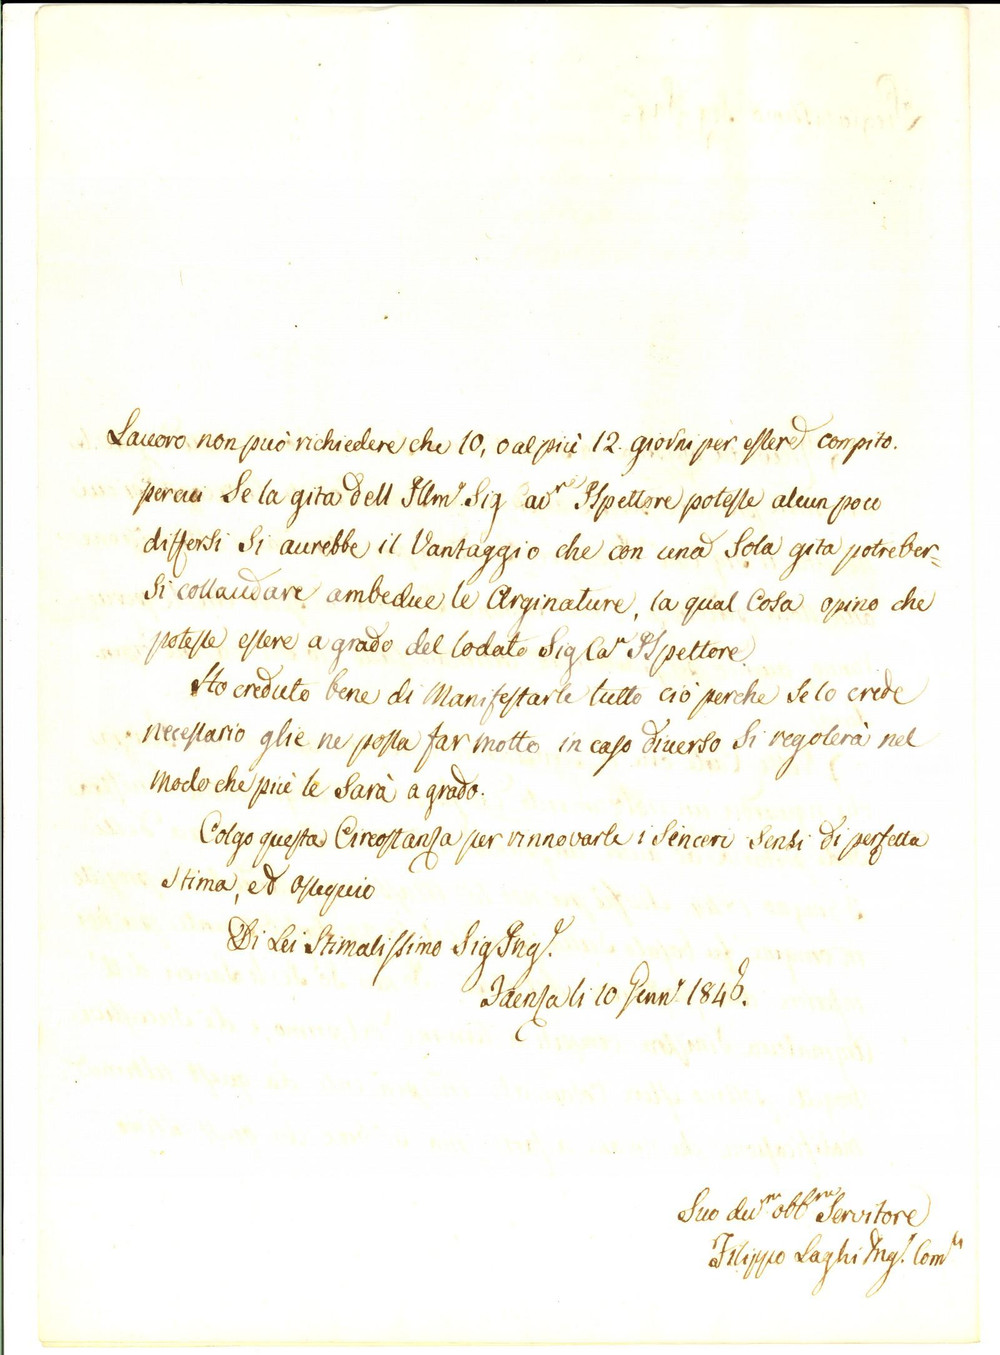 Lavoro non può richiedere che 10, o al più 12. giorni per essere compito.
perciò Se la gita dell Illmo. Sig Ispettore potesse alcun poco
differsi Si avrebbe il Vantaggio che con una Sola gita potreber=
si collaudare ambedue le Arginature, la qual Cosa opino che
potesse essere a grado del lodato Sig Cav Ispettore
Ho creduto bene di Manifestarle tutto ciò perche se lo crede
necessario glie ne possa far motto in caso diverso Si regolerà nel
modo che più le Sarà a grado.
Colgo questa Circostanza per rinnovarle i Sinceri Sensi di perfetta
Stima, ed ossequio
Di Lei Stimatissimo Sig Ingr.
Faenza li 10 Gennr. 1846.
Suo dvmo obbmo Servitore
Filippo Laghi Ingr. Com